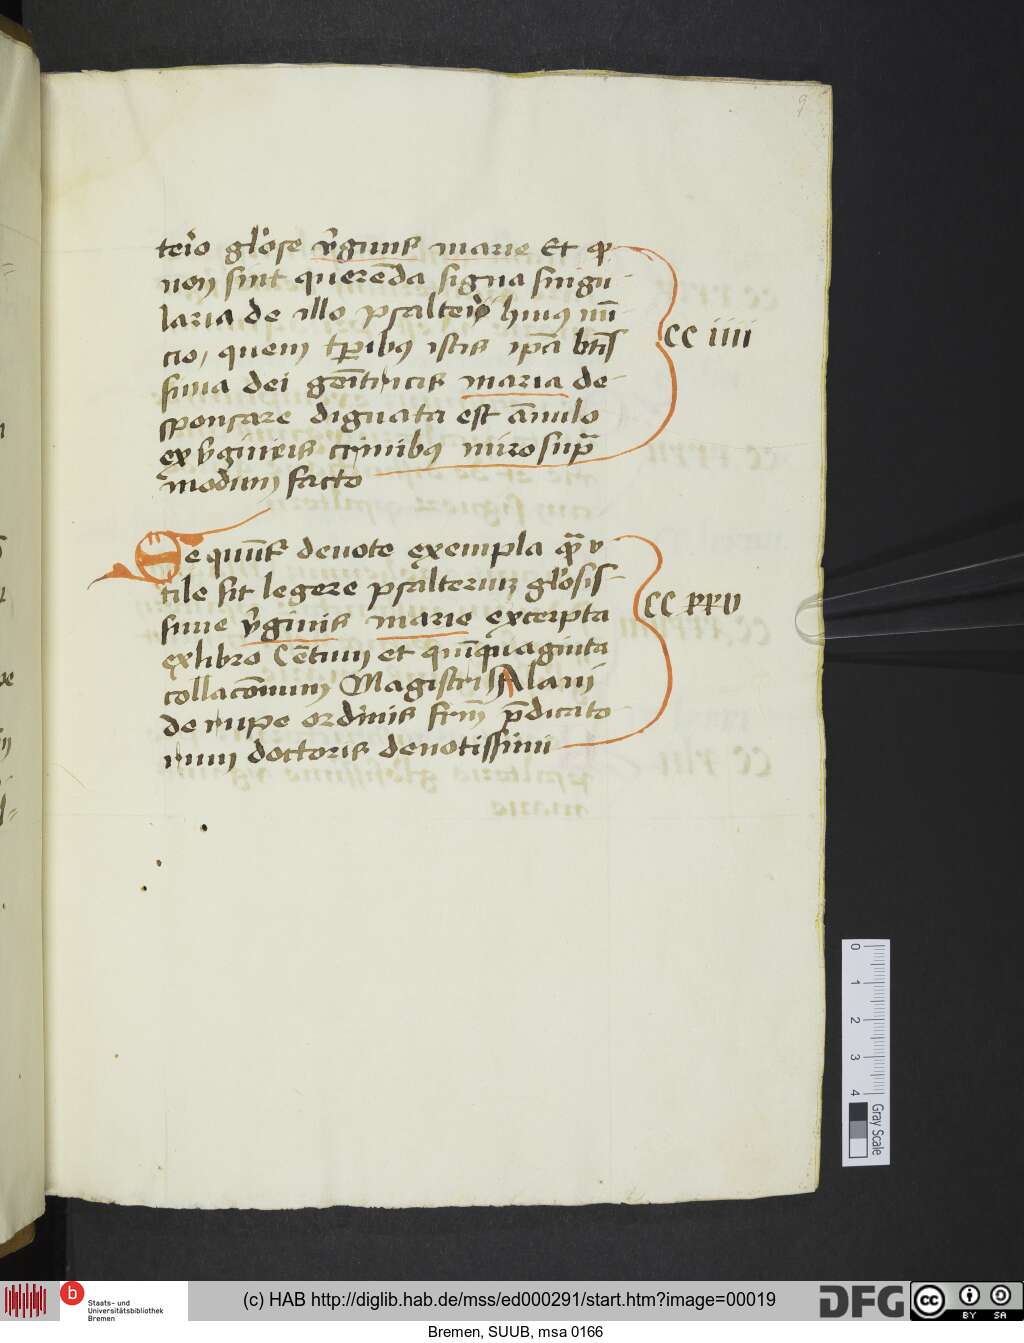 9
teıͦo glōse v̄ginis marie Et qꝫ
non sint querenda signa singu-
laria de illo psalteıͦo huius nūͨ
cio, quem tꝑibꝰ istis ip̄a btīs
sima dei gēitricis maria de-
sponsare dignata est ānulo
ex v̄gineis crinibꝰ miro sup̄
modum facto
CC iiii
Sequūt̄ deuote exempla q̄ꝫ v-
tile sit legere psalterium glōsis-
sime v̄ginis marie excerpta
ex libro Cētum et quīquaginta
collacōnum Magistri Alani
de rupe ordinis frm̄ p̄dicato-
rum doctoris deuotissimi
CC xxv
0 1 2 3 4
Gray Scale
b Staats- und
Universitätsbibliothek
Bremen
(c) HAB http://diglib.hab.de/mss/ed000291/start.htm?image=00019
DFG
cc BY SA
Bremen, SUUB, msa 0166